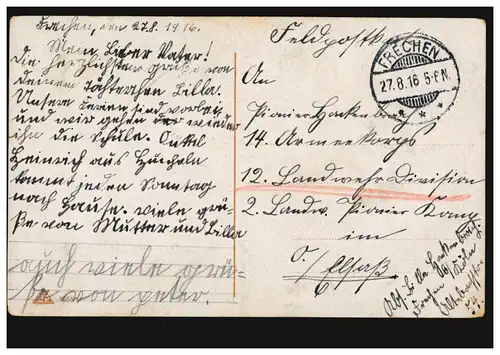 Frechen, den 27.8.1916.
Mein Lieber Vater!
die herzlichsten grüße von
deinem Töchterchen Billa.
Unsere Ferien sind vorbei
und wir gehen wieder
in die Schule. Onkel
Heinrich aus Hücheln
kommt jeden Sonntag
nach Hause. viele grü-
ße von Mutter und Billa
auch viele grü-
ße von peter.
Feldpostk
FRECHEN
27.8.16 5-6N.
* * *
An
Pionier Hackenbroch
14. Armeekorps
12. Landwehr Division
2. Landw. Pionier Komp
im
O./Elsaß
Abs. Billa Hackenbroch
Frechen